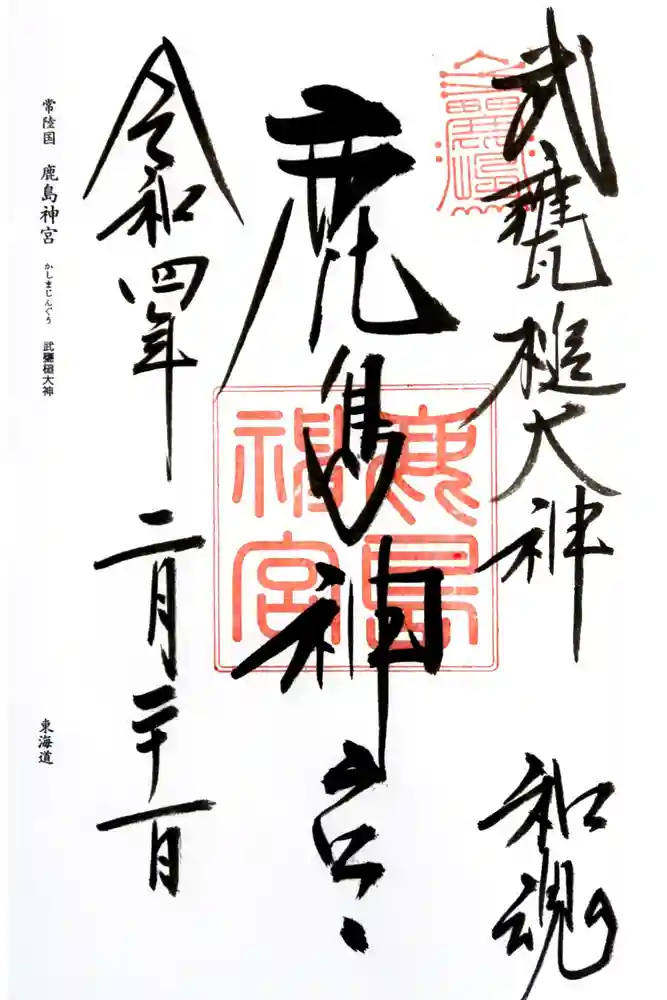 武甕槌大神 和魂
鹿島神宮
鹿島神宮
令和四年二月二十一日
常陸国 鹿島神宮 かしまじんぐう 武甕槌大神
東海道